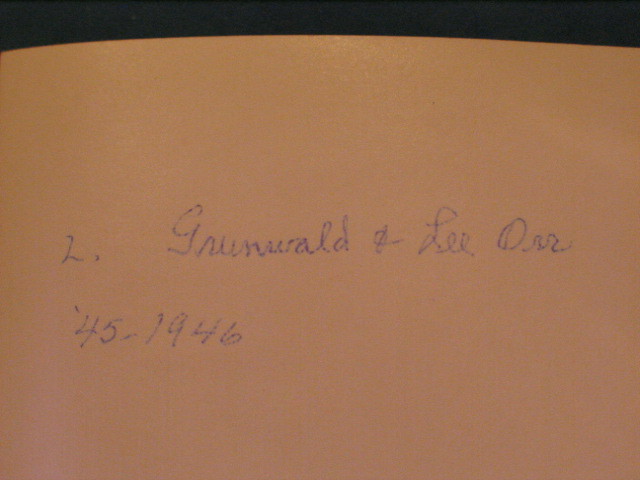 L. Grunwald & Lee Orr
'45-1946